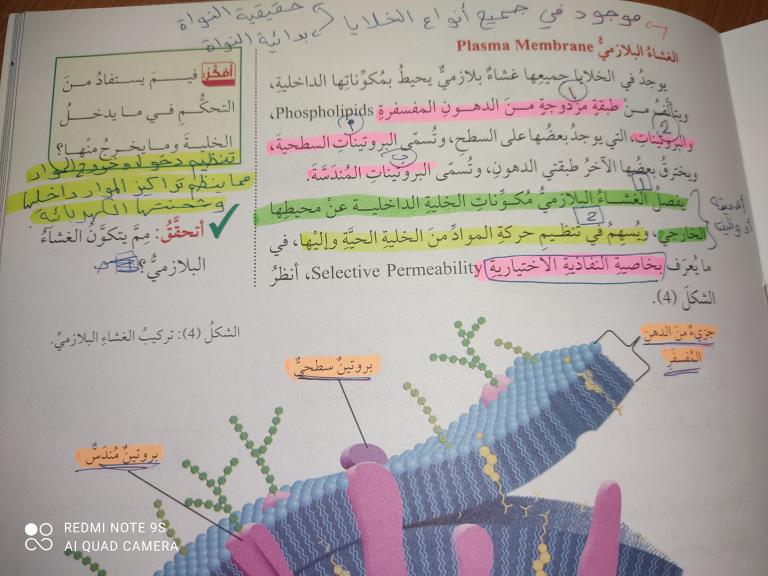 موجود في جميع أنواع الخلايا
حقيقية النواة
بدائية النواة
الغشاءُ البلازميُّ Plasma Membrane
يوجدُ في الخلايا جميعِها غشاءٌ بلازميٌّ يحيطُ بمُكوِّناتِها الداخليةِ،
ويتألَّفُ منْ طبقةٍ مزدوجةٍ منَ الدهونِ المفسفرةِ Phospholipids،
والبروتيناتِ، التي يوجدُ بعضُها على السطحِ، وتُسمّى البروتيناتِ السطحيةَ،
ويخترقُ بعضُها الآخرُ طبقتيِ الدهونِ، وتُسمّى البروتيناتِ المُندَسَّةَ.
يفصلُ الغشاءُ البلازميُّ مُكوِّناتِ الخليةِ الداخليةَ عنْ محيطِها
الخارجيِّ، ويُسهِمُ في تنظيمِ حركةِ الموادِّ منَ الخليةِ الحيَّةِ وإليْها، في
ما يُعرَف بخاصيةِ النفاذيةِ الاختياريةِ Selective Permeability، أنظرُ
الشكلَ (4).
1
2
أ
ب
1
2
أهمية
أو وظيفة
أفكِّر فيمَ يستفادُ منَ
التحكُّمِ في ما يدخلُ
الخليةَ وما يخرجُ منْها؟
تنظيم دخول وخروج المواد
مما ينظم تراكيز المواد داخلها
وشحنتها الكهربائية
أتحقَّقُ: مِمَّ يتكوَّنُ الغشاءُ
البلازميُّ؟
الشكلُ (4): تركيبُ الغشاءِ البلازميِّ.
جزيءٌ منَ الدهنِ
المُفسفَرِ
بروتينٌ سطحيٌّ
بروتينٌ مُندَسٌّ
REDMI NOTE 9S
AI QUAD CAMERA